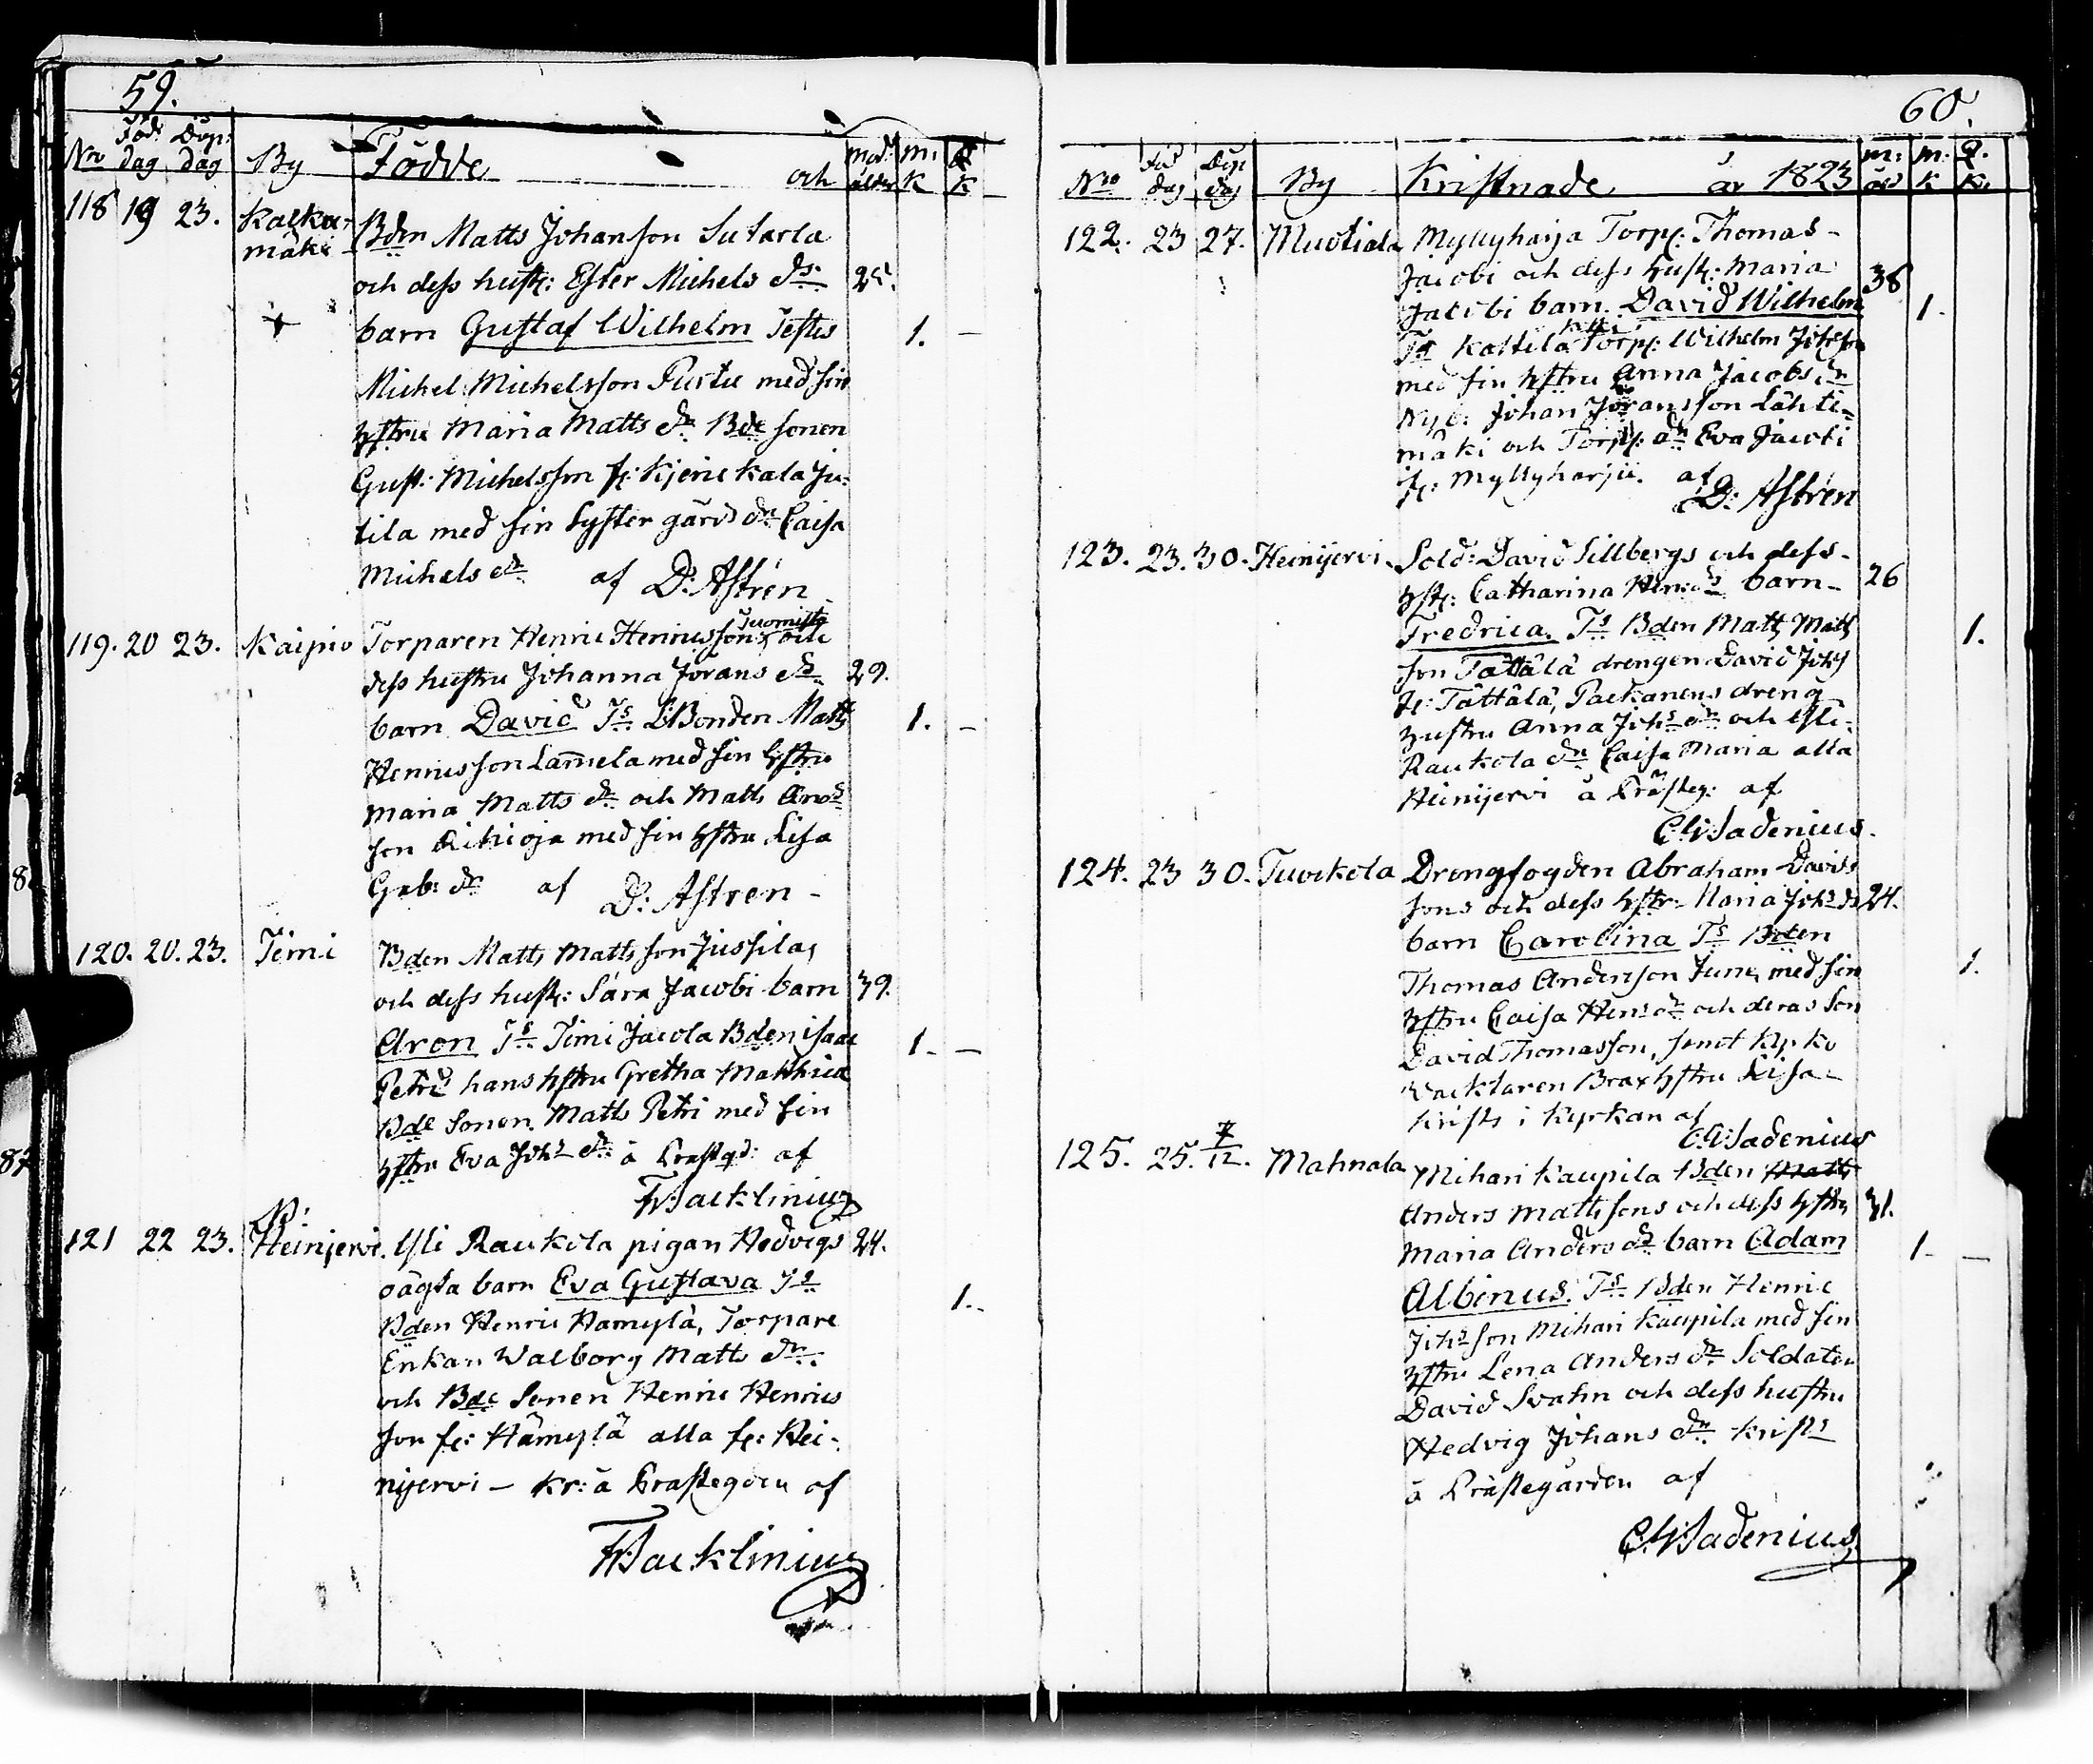 59.
Nro Föd. dag Döp: dag By Födde och mod: ålder M: K Q K
118 19 23. Kalku-
mäki
Bden Matts Johansson Sutarla
och dess hust: Ester Michels dr 25.
barn Gustaf Wilhelm Testes 1. –
Michel Michelsson Pustu med sin
hstru Maria Matts dr Bde sonen
Gust: Michelsson fr: Kjerickala Ju-
tila med sin Syster gärds dr Caisa
Michels dr af D: Astrén
119. 20 23. Kaipio Torparen Henric Henricsson Tuomisto och
dess hustru Johanna Jörans dr 29.
barn David Ts Bonden Matts 1. –
Henricsson Lammela med sin hstru
Maria Matts dr och Matts Ands
son Rihioja med sin hstru Lisa
Gab: dr af D: Astren –
120. 20. 23. Teini Bden Matts Mattsson Jussilas
och dess hust: Sara Jacobi barn 39.
Aron Ts Teini Jacola Bden Isaac 1. –
Petri hans hstru Gretha Matthiæ
Bde Sonen Matts Petri med sin
hstru Eva Johs dr å Prästgd: af
Backlinius
121 22 23. N: Heinijervi. Ysti Raukola pigan Hedvigs 24.
oägta barn Eva Gustava Ts 1.
Bden Henric Hameylä, Torpare
Enkan Walborg Matts dr
och Bde Sonen Henric Henrics
son fr: Hämeylä alla fr: Hei-
nijervi – kr: å Prästegden af
Backlinius
60.
Nro Föd dag Döp dag By Kristnade år 1823 m: åld M. K Q. K.
122. 23 27. Muotiala Myllyharja Torp: Thomas
Jacobi och dess hust: Maria 38
Jacobi barn. David Wilhelm 1.
Ts Kattila Torp: Wilhelm Johsson
med sin hstru Anna Jacobs dr
Nyb: Johan Jöransson Lähte-
mäki och Torp: dr Eva Jacobi
fr: Myllyharju. af
D: Astrén
123. 23. 30. Heinijervi Sold: David Sillbergs och dess
hst: Catharina Henr: dr barn 26
Fredrica. Ts Bden Matts Matts 1.
son Tättälä drengen David Johs
fr: Tättälä, Packanens dreng
hustru Anna Johs dr och Ysti-
Raukola dr Caisa Maria alla
Heinijervi å Prästeg: af
C. W: Sadenius.
124. 23 30. Tuorkola Drengfogden Abraham Davids
sons och dess hstr: Maria Johs dr 24.
barn Carolina Ts Bden
Thomas Andersson June, med sin 1.
hstru Caisa Henr dr och deras Son
David Thomasson, samt Kyrko
wacktaren Brax hstru Lisa
krists i Kyrkan af
C. W: Sadenius
125. 25. 7/12. Mahnala Mihari Kaupila Bden Matts
Anders Mattssons och dess hstru 31.
Maria Anders dr barn Adam 1. –
Albinus. Ts Bden Henric
Johsson Mihari Kaupila med sin
hstru Lena Anders dr Soldaten
David Svahn och dess hustru
Hedvig Johans dr krists
å Prästegården af
C. W: Sadenius